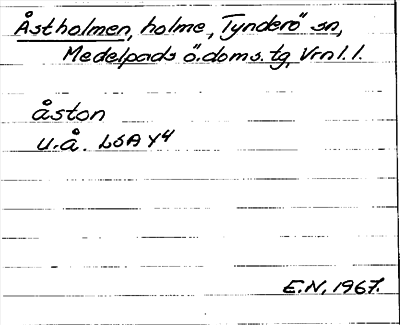 Åstholmen, holme, Tynderö sn,
Medelpads ö. doms. tg, Vrnl. l.
åston
u.å. LSA Y4
E.N. 1967.